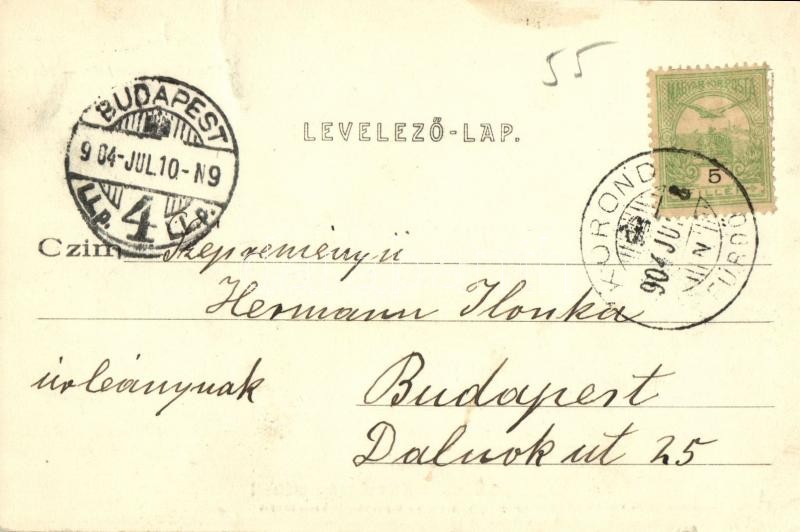 55
MAGYAR KIR. POSTA
5
FILLÉR
BUDAPEST
904-JUL.10.-N9
4
LEVELEZŐ-LAP.
KORONDFÜRDŐ
904 JUL 8
N
Czim Szépreményű
Hermann Ilonka
úrleánynak
Budapest
Dalnok ut 25